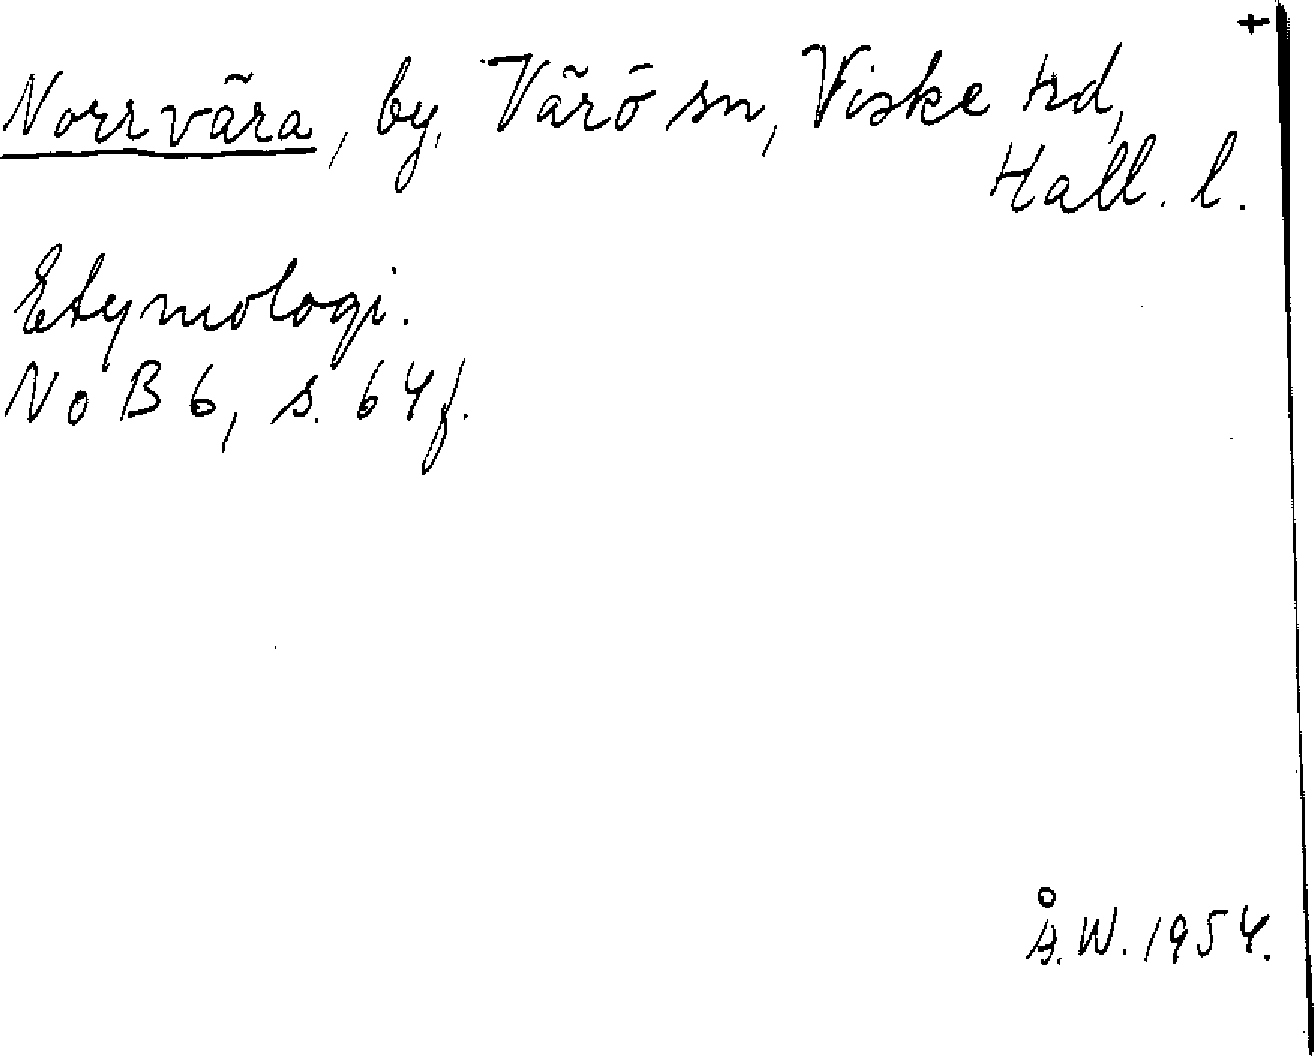 +
Norrvära, by, Värö sn, Viske hd,
Hall. l.
Etymologi.
NoB 6, s. 64 f.
Å.W. 1954.